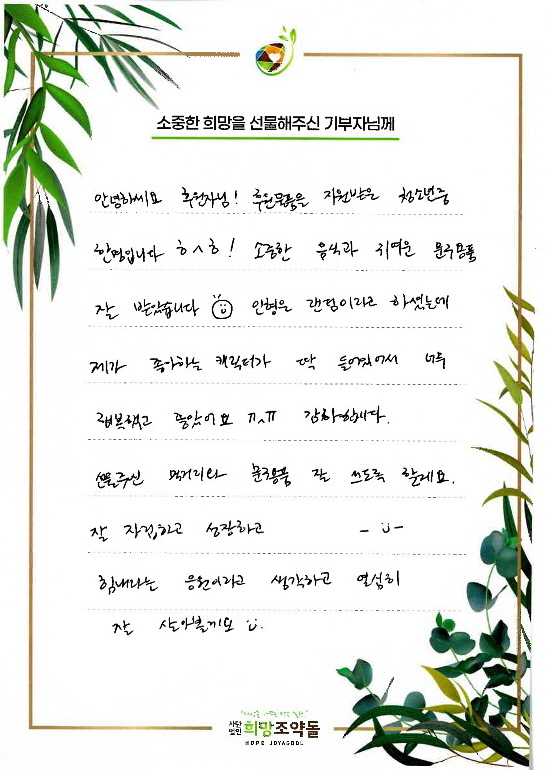 소중한 희망을 선물해주신 기부자님께
안녕하세요 후원자님! 후원물품을 지원받은 청소년중
한명입니다 ㅎㅅㅎ! 소중한 음식과 귀여운 문구용품
잘 받았습니다 인형은 랜덤이라고 하셨는데
제가 좋아하는 캐릭터가 딱 들어있어서 너무
행복했고 좋았어요 ㅠㅅㅠ 감사합니다.
선물주신 먹거리와 문구용품 잘 쓰도록 할게요.
잘 자립하고 성장하고
힘내라는 응원이라고 생각하고 열심히
잘 살아볼게요
사단법인 희망조약돌
HOPE JOYAGDOL